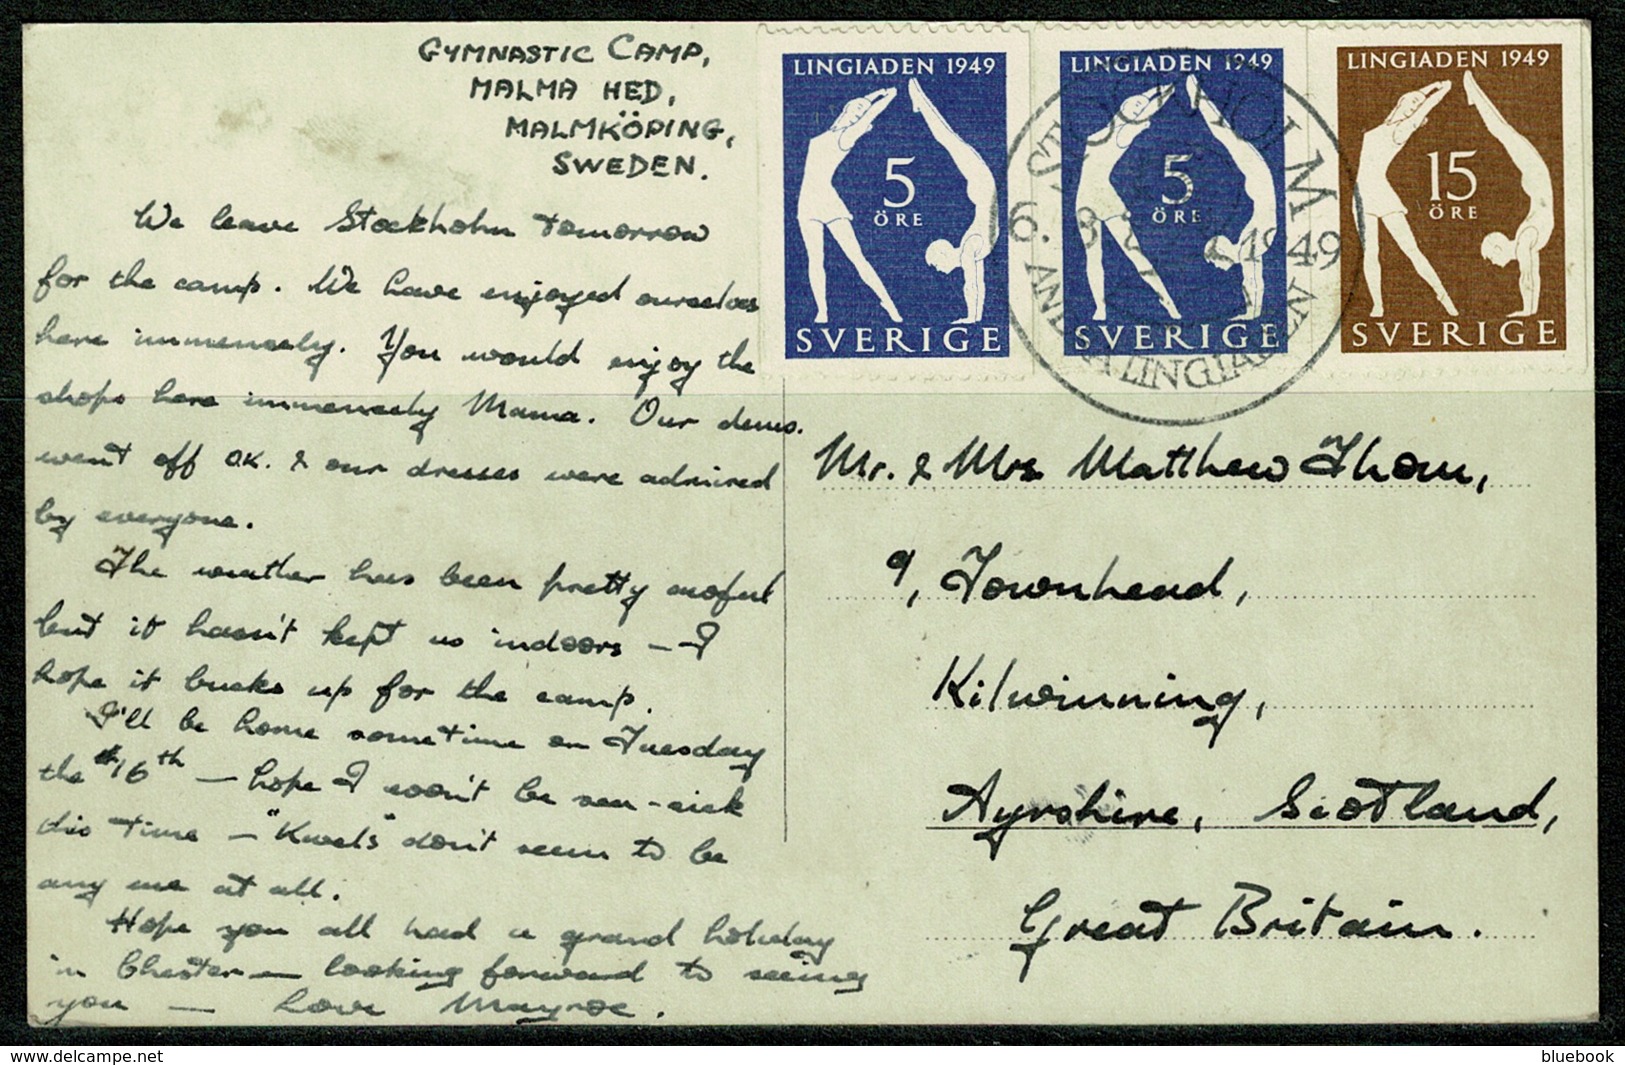 GYMNASTIC CAMP,
MALMA HED,
MALMKÖPING,
SWEDEN.
We leave Stockholm tomorrow
for the camp. We have enjoyed ourselves
here immensely. You would enjoy the
shops here immensely Mama. Our dems.
went off O.K. & our dresses were admired
by everyone.
The weather has been pretty awful
but it hasn't kept us indoors — I
hope it bucks up for the camp.
I'll be home sometime on Tuesday
the 16th — hope I won't be sea-sick
this time — "Kwels" don't seem to be
any use at all.
Hope you all had a grand holiday
in Chester — looking forward to seeing
you — Love
LINGIADEN 1949
5
ÖRE
SVERIGE
LINGIADEN 1949
5
ÖRE
SVERIGE
LINGIADEN 1949
15
ÖRE
SVERIGE
STOCKHOLM
6. 8. 1949
ANDRA LINGIADEN
Mr. & Mrs Matthew Thom,
9, Townhead,
Kilwinning,
Ayrshire, Scotland,
Great Britain.
delcampe.net
bluebook